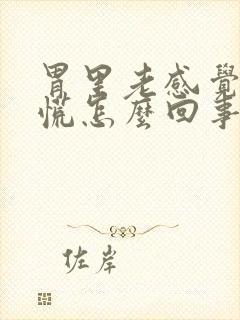 胃里老感覺
慌怎麼回事
佐岸